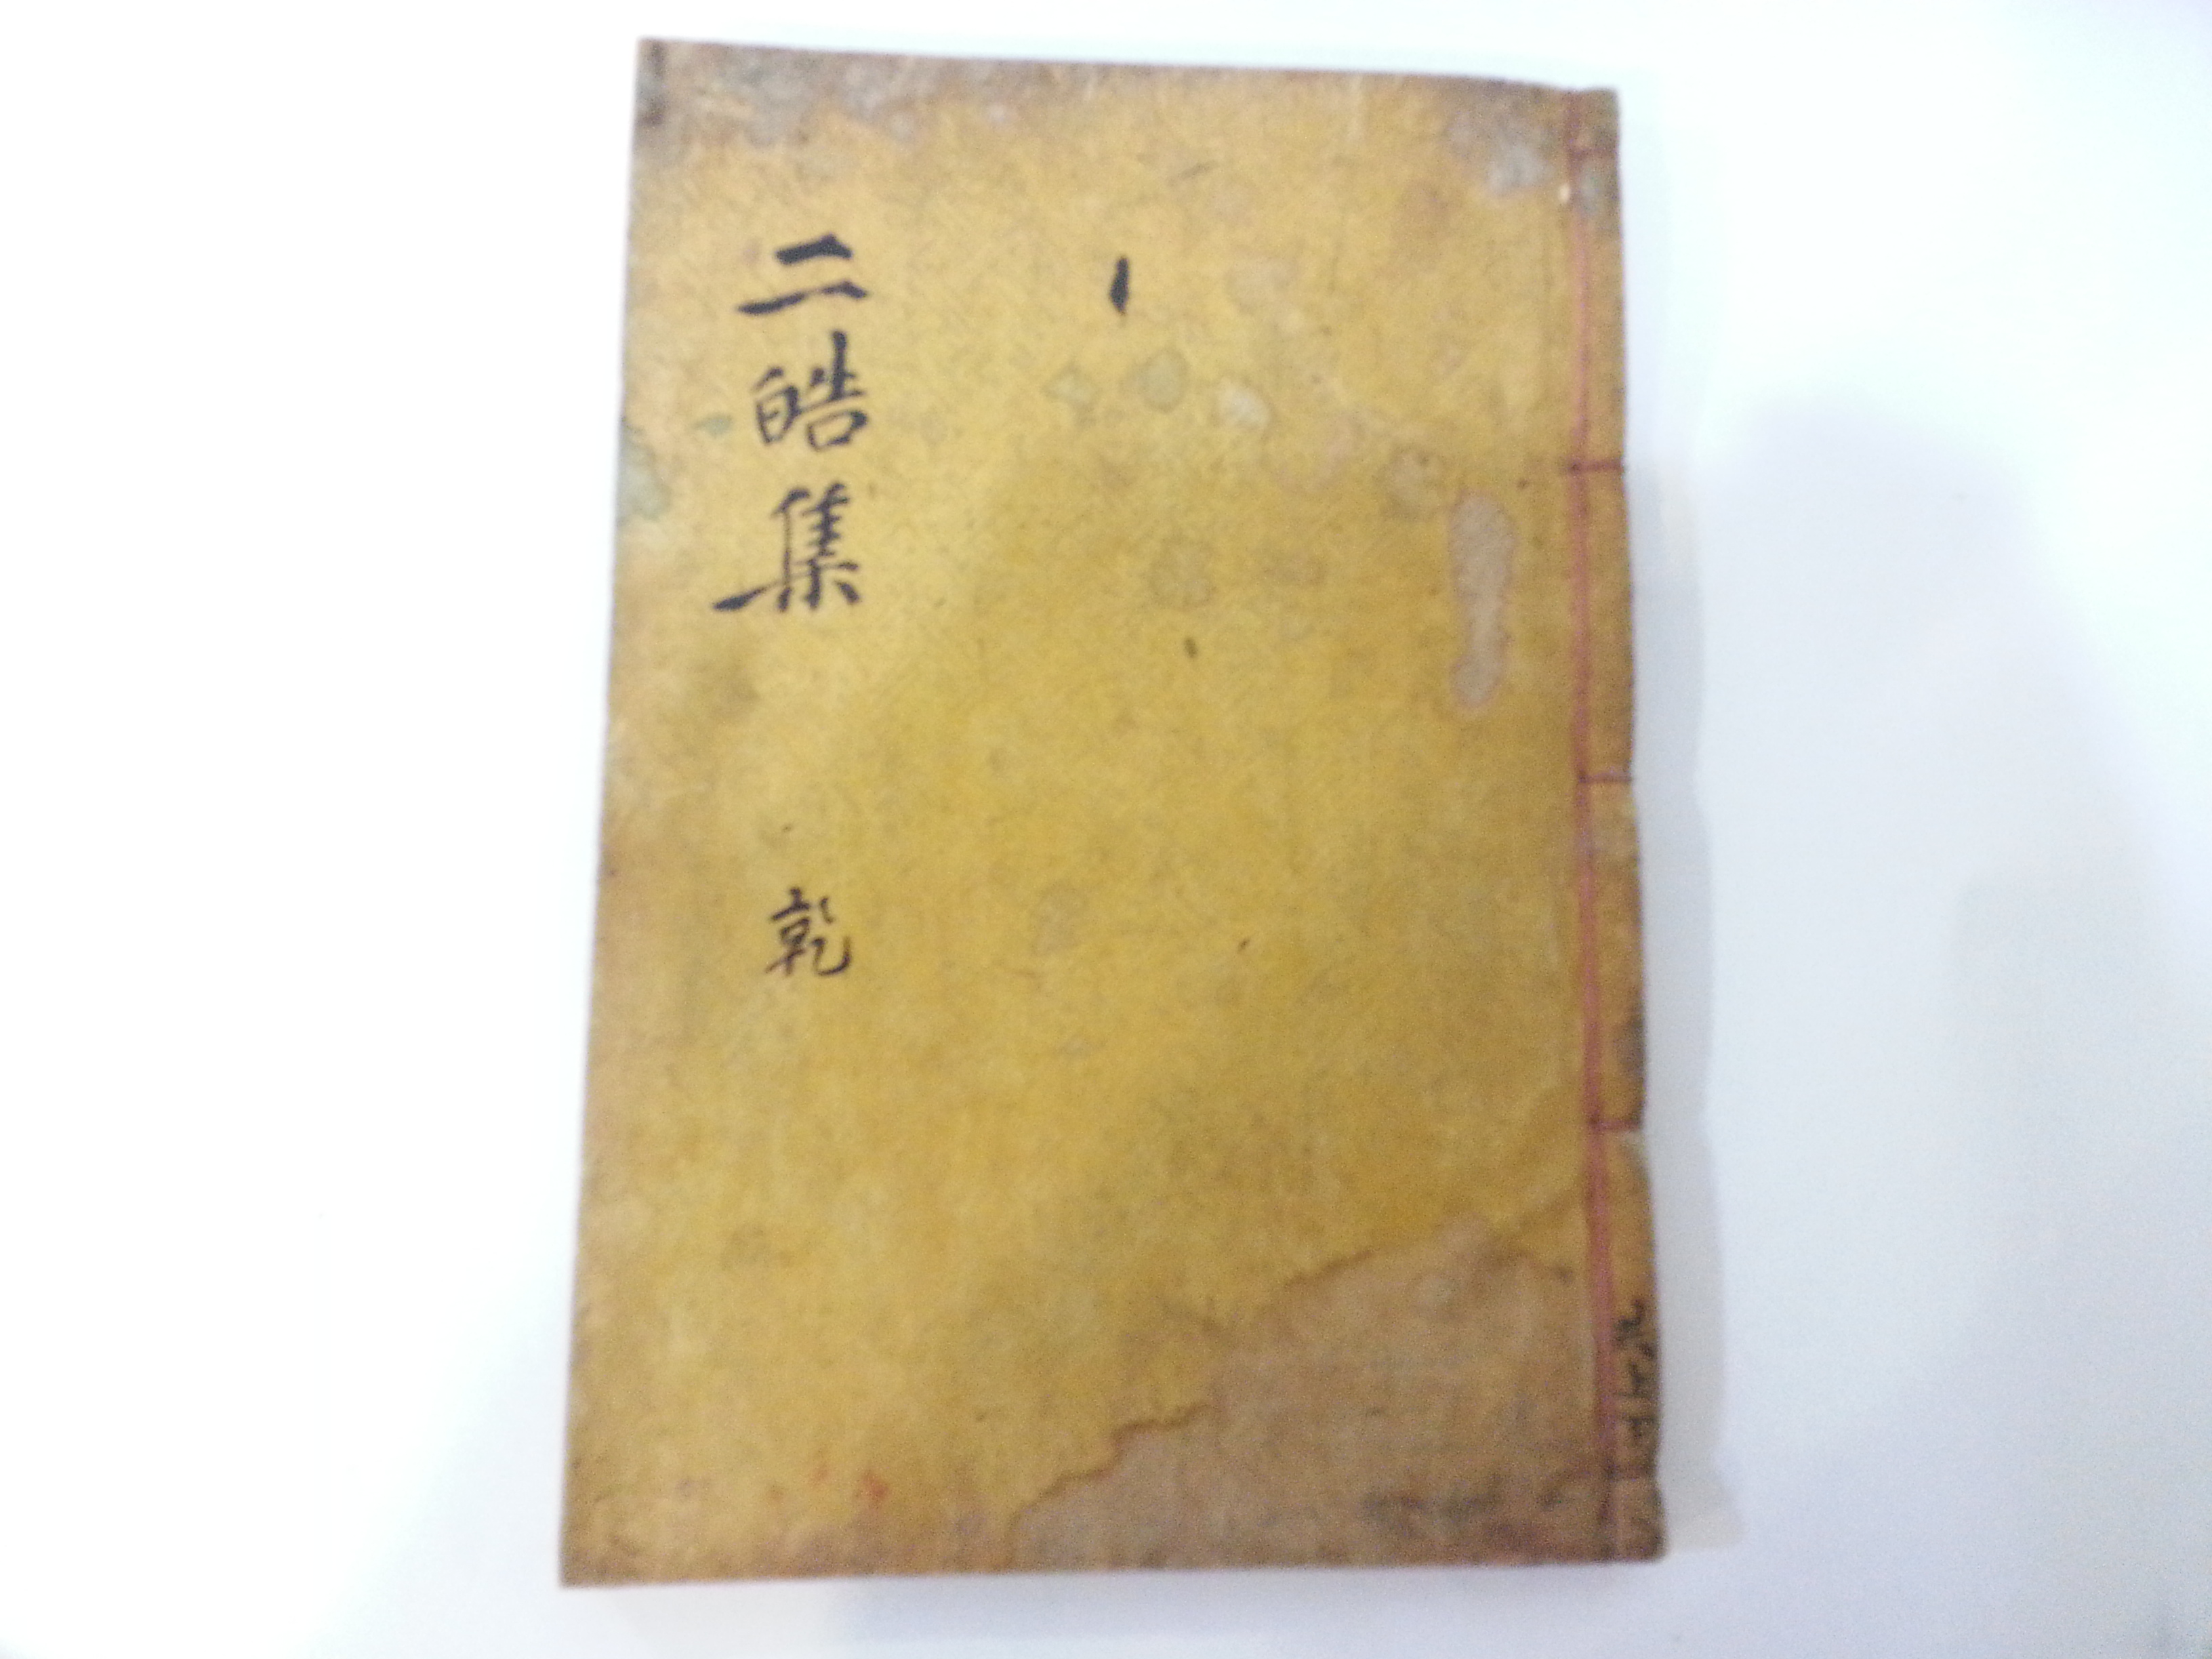 二皓集
乾